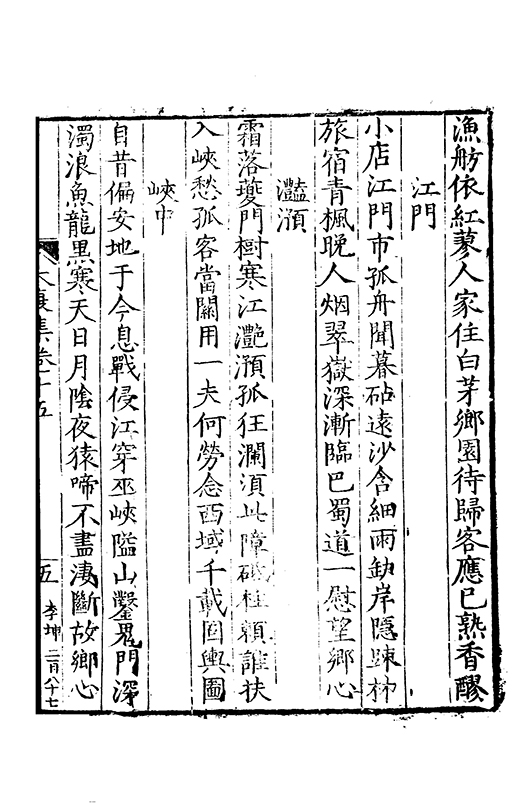 漁舫依紅蓼人家住白茅鄉園待歸客應已熟香醪
江門
小店江門市孤舟聞暮砧遠沙含細雨缺岸隱踈林
旅宿青楓晚人烟翠嶽深漸臨巴蜀道一慰望鄉心
灩澦
霜落夔門樹寒江灔澦孤狂瀾須此障砥柱賴誰扶
入峽愁孤客當關用一夫何勞念西域千載固輿圖
峽中
自昔偏安地于今息戰侵江穿巫峽隘山鑿鬼門深
濁浪魚龍黑寒天日月陰夜猿啼不盡淒斷故鄉心
太康集卷十五
五
李坤
二百八十七